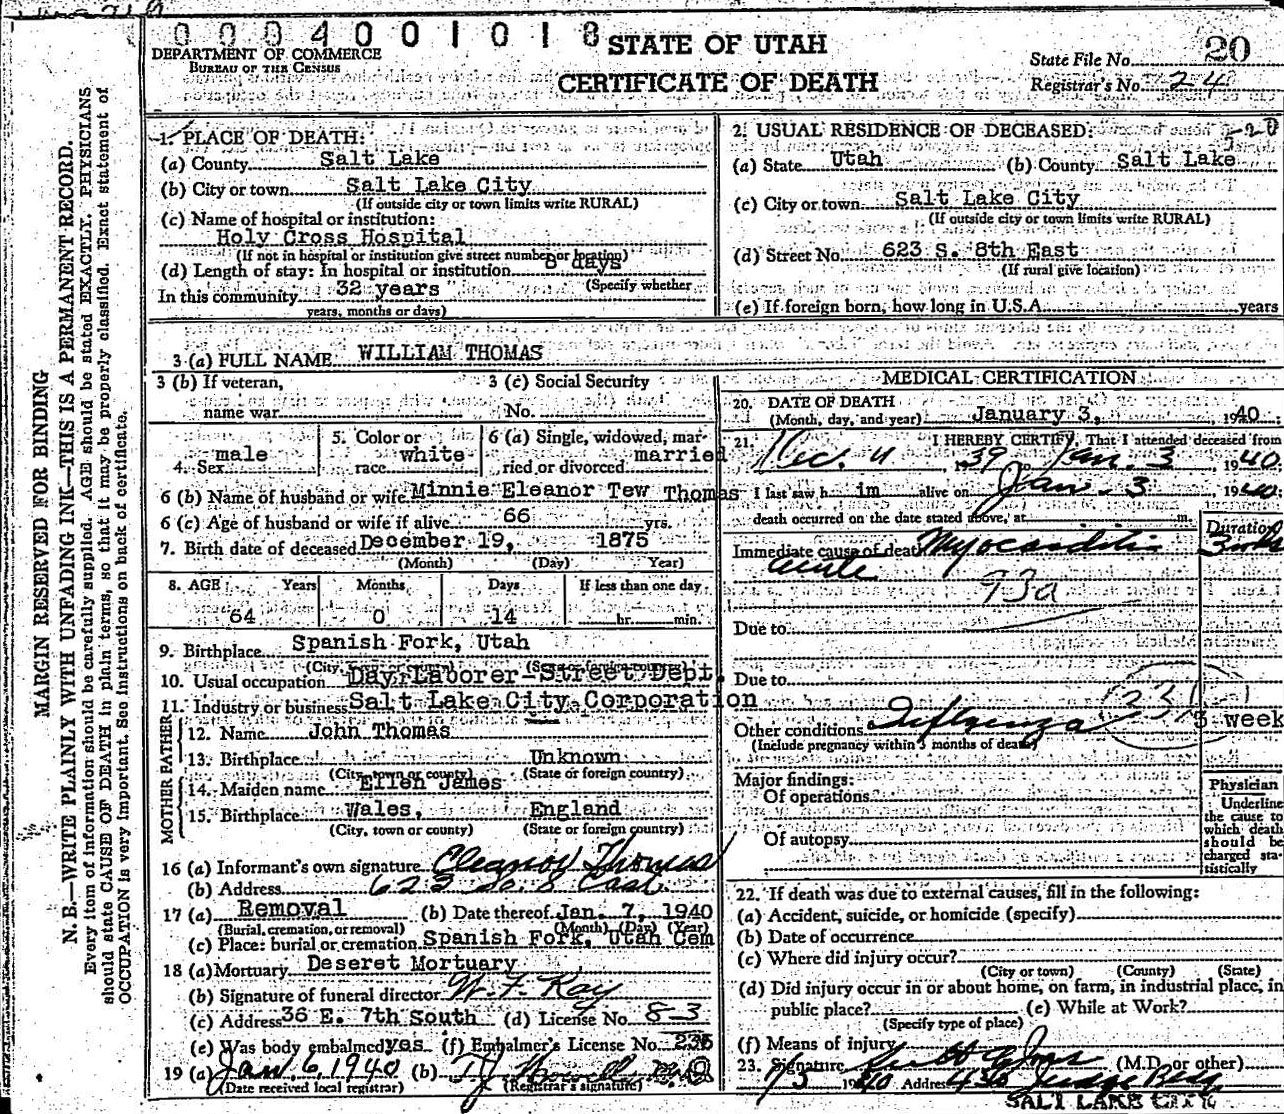 0004001018
DEPARTMENT OF COMMERCE
BUREAU OF THE CENSUS
STATE OF UTAH
CERTIFICATE OF DEATH
State File No. 20
Registrar's No. 24
MARGIN RESERVED FOR BINDING
N. B.—WRITE PLAINLY WITH UNFADING INK—THIS IS A PERMANENT RECORD.
Every item of information should be carefully supplied. AGE should be stated EXACTLY. PHYSICIANS
should state CAUSE OF DEATH in plain terms, so that it may be properly classified. Exact statement of
OCCUPATION is very important. See instructions on back of certificate.
1. PLACE OF DEATH:
(a) County Salt Lake
(b) City or town Salt Lake City
(If outside city or town limits write RURAL)
(c) Name of hospital or institution:
Holy Cross Hospital
(If not in hospital or institution give street number or location)
(d) Length of stay: In hospital or institution 8 days
(Specify whether
In this community 32 years
years, months or days)
2. USUAL RESIDENCE OF DECEASED:
(a) State Utah (b) County Salt Lake
(c) City or town Salt Lake City
(If outside city or town limits write RURAL)
(d) Street No. 623 S. 8th East
(If rural give location)
(e) If foreign born, how long in U.S.A. years
3 (a) FULL NAME WILLIAM THOMAS
3 (b) If veteran, name war
3 (c) Social Security No.
4. Sex male
5. Color or race white
6 (a) Single, widowed, married or divorced married
6 (b) Name of husband or wife Minnie Eleanor Tew Thomas
6 (c) Age of husband or wife if alive 66 yrs.
7. Birth date of deceased December 19, 1875
(Month) (Day) Year)
8. AGE: Years Months Days If less than one day
64 0 14 hr. min.
9. Birthplace Spanish Fork, Utah
(City, town or county) (State or foreign country)
10. Usual occupation Day Laborer-Street Dept.
11. Industry or business Salt Lake City Corporation
FATHER
12. Name John Thomas
13. Birthplace Unknown
(City, town or county) (State or foreign country)
MOTHER
14. Maiden name Ellen James
15. Birthplace Wales, England
(City, town or county) (State or foreign country)
16 (a) Informant's own signature Eleanor Thomas
(b) Address 623 So. 8 East
17 (a) Removal (b) Date thereof Jan. 7, 1940
(Burial, cremation, or removal) (Month) (Day) (Year)
(c) Place: burial or cremation Spanish Fork, Utah Cem
18 (a) Mortuary Deseret Mortuary
(b) Signature of funeral director W. F. Kay
(c) Address 36 E. 7th South (d) License No. 8-3
(e) Was body embalmed yes (f) Embalmer's License No. 236
19 (a) Jan 6 1940 (b)
(Date received local registrar) (Registrar's signature)
MEDICAL CERTIFICATION
20. DATE OF DEATH
(Month, day, and year) January 3, 1940
21. I HEREBY CERTIFY, That I attended deceased from
Dec. 4, 1939 Jan. 3 1940.
I last saw h im alive on Jan. 3, 1940.
death occurred on the date stated above, at m.
Duration
Immediate cause of death Myocarditis
acute
93a
Due to
Due to
Other conditions Influenza 33 3 week
(Include pregnancy within 3 months of death)
Major findings:
Of operations
Of autopsy
Physician
Underline
the cause to
which death
should be
charged sta-
tistically
22. If death was due to external causes, fill in the following:
(a) Accident, suicide, or homicide (specify)
(b) Date of occurrence
(c) Where did injury occur?
(City or town) (County) (State)
(d) Did injury occur in or about home, on farm, in industrial place, in
public place? (e) While at Work?
(Specify type of place)
(f) Means of injury
23. Signature (M.D. or other)
1/3 1940 Address 430 Judge Bldg
SALT LAKE CITY